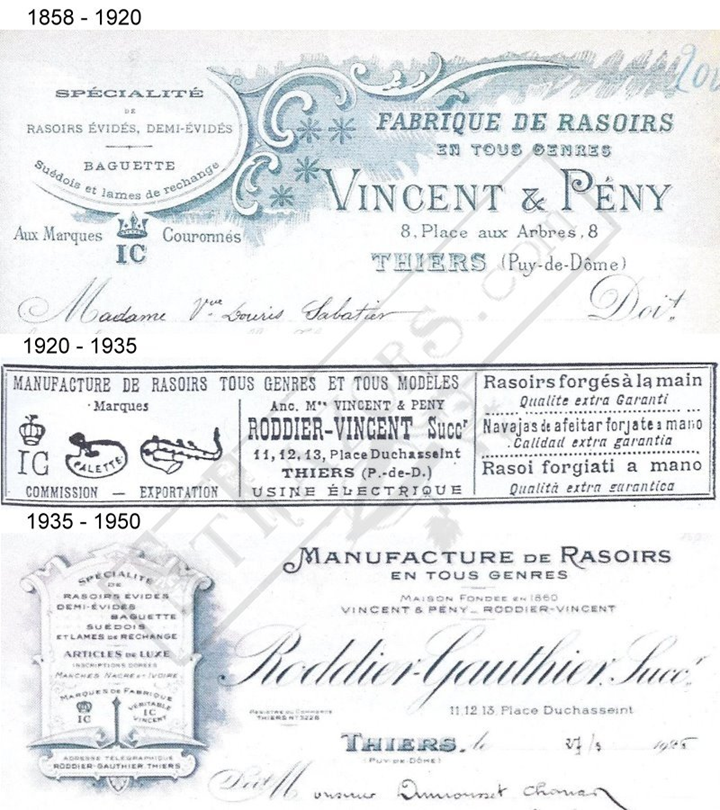 1858 - 1920
SPÉCIALITÉ
DE
RASOIRS ÉVIDÉS, DEMI-ÉVIDÉS
BAGUETTE
Suédois et lames de rechange
Aux Marques IC Couronnés
FABRIQUE DE RASOIRS
EN TOUS GENRES
VINCENT & PÉNY
8, Place aux Arbres, 8
THIERS (Puy-de-Dôme)
Madame Vve Douris Sabatier Doit
1920 - 1935
MANUFACTURE DE RASOIRS TOUS GENRES ET TOUS MODÈLES
Marques
IC PALETTE
COMMISSION — EXPORTATION
Anc. Mons VINCENT & PENY
RODDIER-VINCENT Succr
11, 12, 13, Place Duchasseint
THIERS (P.-de-D.)
USINE ÉLECTRIQUE
Rasoirs forgés à la main
Qualite extra Garanti
Navajas de afeitar forjate a mano
Calidad extra garantia
Rasoi forgiati a mano
Qualità extra garantica
1935 - 1950
SPÉCIALITÉ
DE
RASOIRS ÉVIDÉS
DEMI-ÉVIDÉS
BAGUETTE
SUÉDOIS
ET LAMES DE RECHANGE
ARTICLES DE LUXE
INSCRIPTIONS DORÉES
MANCHES NACRE ET IVOIRE
MARQUES DE FABRIQUE
IC
VÉRITABLE
IC
VINCENT
ADRESSE TÉLÉGRAPHIQUE
RODDIER-GAUTHIER, THIERS
MANUFACTURE DE RASOIRS
EN TOUS GENRES
MAISON FONDÉE EN 1860
VINCENT & PÉNY _ RODDIER-VINCENT
Roddier-Gauthier, Succr
REGISTRE DU COMMERCE
THIERS N° 3226
11.12.13, Place Duchasseint
THIERS, le 27/3
(PUY-DE-DÔME)
Doit M onsieur